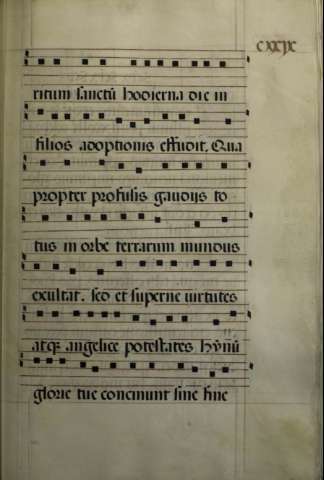 cxxix
ritum sanctū hodierna die in
filios adoptionis effudit. Qua
propter profusis gaudijs to
tus in orbe terrarum mundus
exultat. sed et superne uirtutes
atq; angelice potestates hȳnū
glorie tue concinunt sine fine